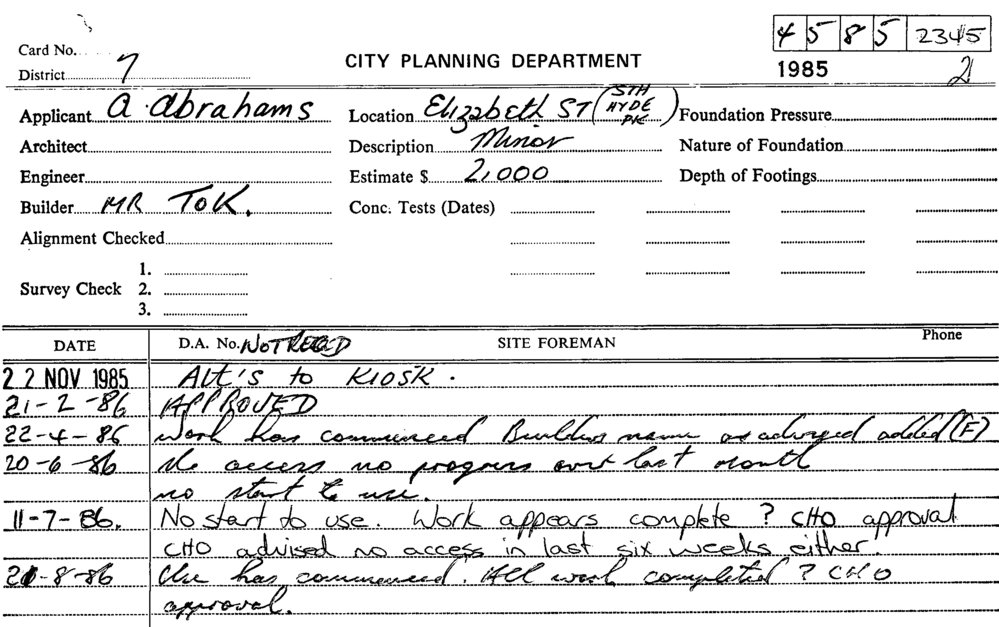 4 5 8 5 2345
Card No.
District 7
CITY PLANNING DEPARTMENT
1985 21
Applicant A. Abrahams
Location Elizabeth ST (STH HYDE PK)
Foundation Pressure
Architect
Description Minor
Nature of Foundation
Engineer
Estimate $ 2,000
Depth of Footings
Builder MR TOK.
Conc. Tests (Dates)
Alignment Checked
1.
Survey Check 2.
3.
DATE D.A. No. NOT REQD SITE FOREMAN Phone
22 NOV 1985 Alt's to KIOSK.
21-2-86 APPROVED
22-4-86 Work has commenced Builders name as advised added (F)
20-6-86 No access no progress over last month
no start to use.
11-7-86. No start to use. Work appears complete ? CHO approval
CHO advised no access in last six weeks either.
21-8-86 Use has commenced. All work completed ? CHO
approval.